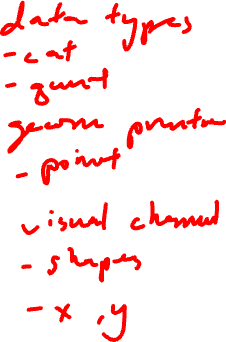 data types
- cat
- quant
geom
- point
visual channel
- shapes
- x , y